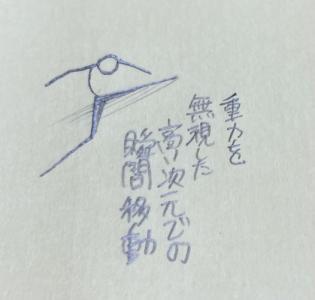 重力を
無視した
高い次元での
瞬間移動